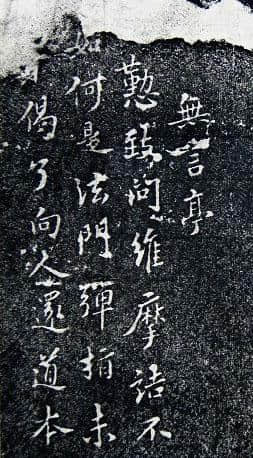 無言亭
懃致問維摩詰不
如何是法門彈指未
偈了向人還道本